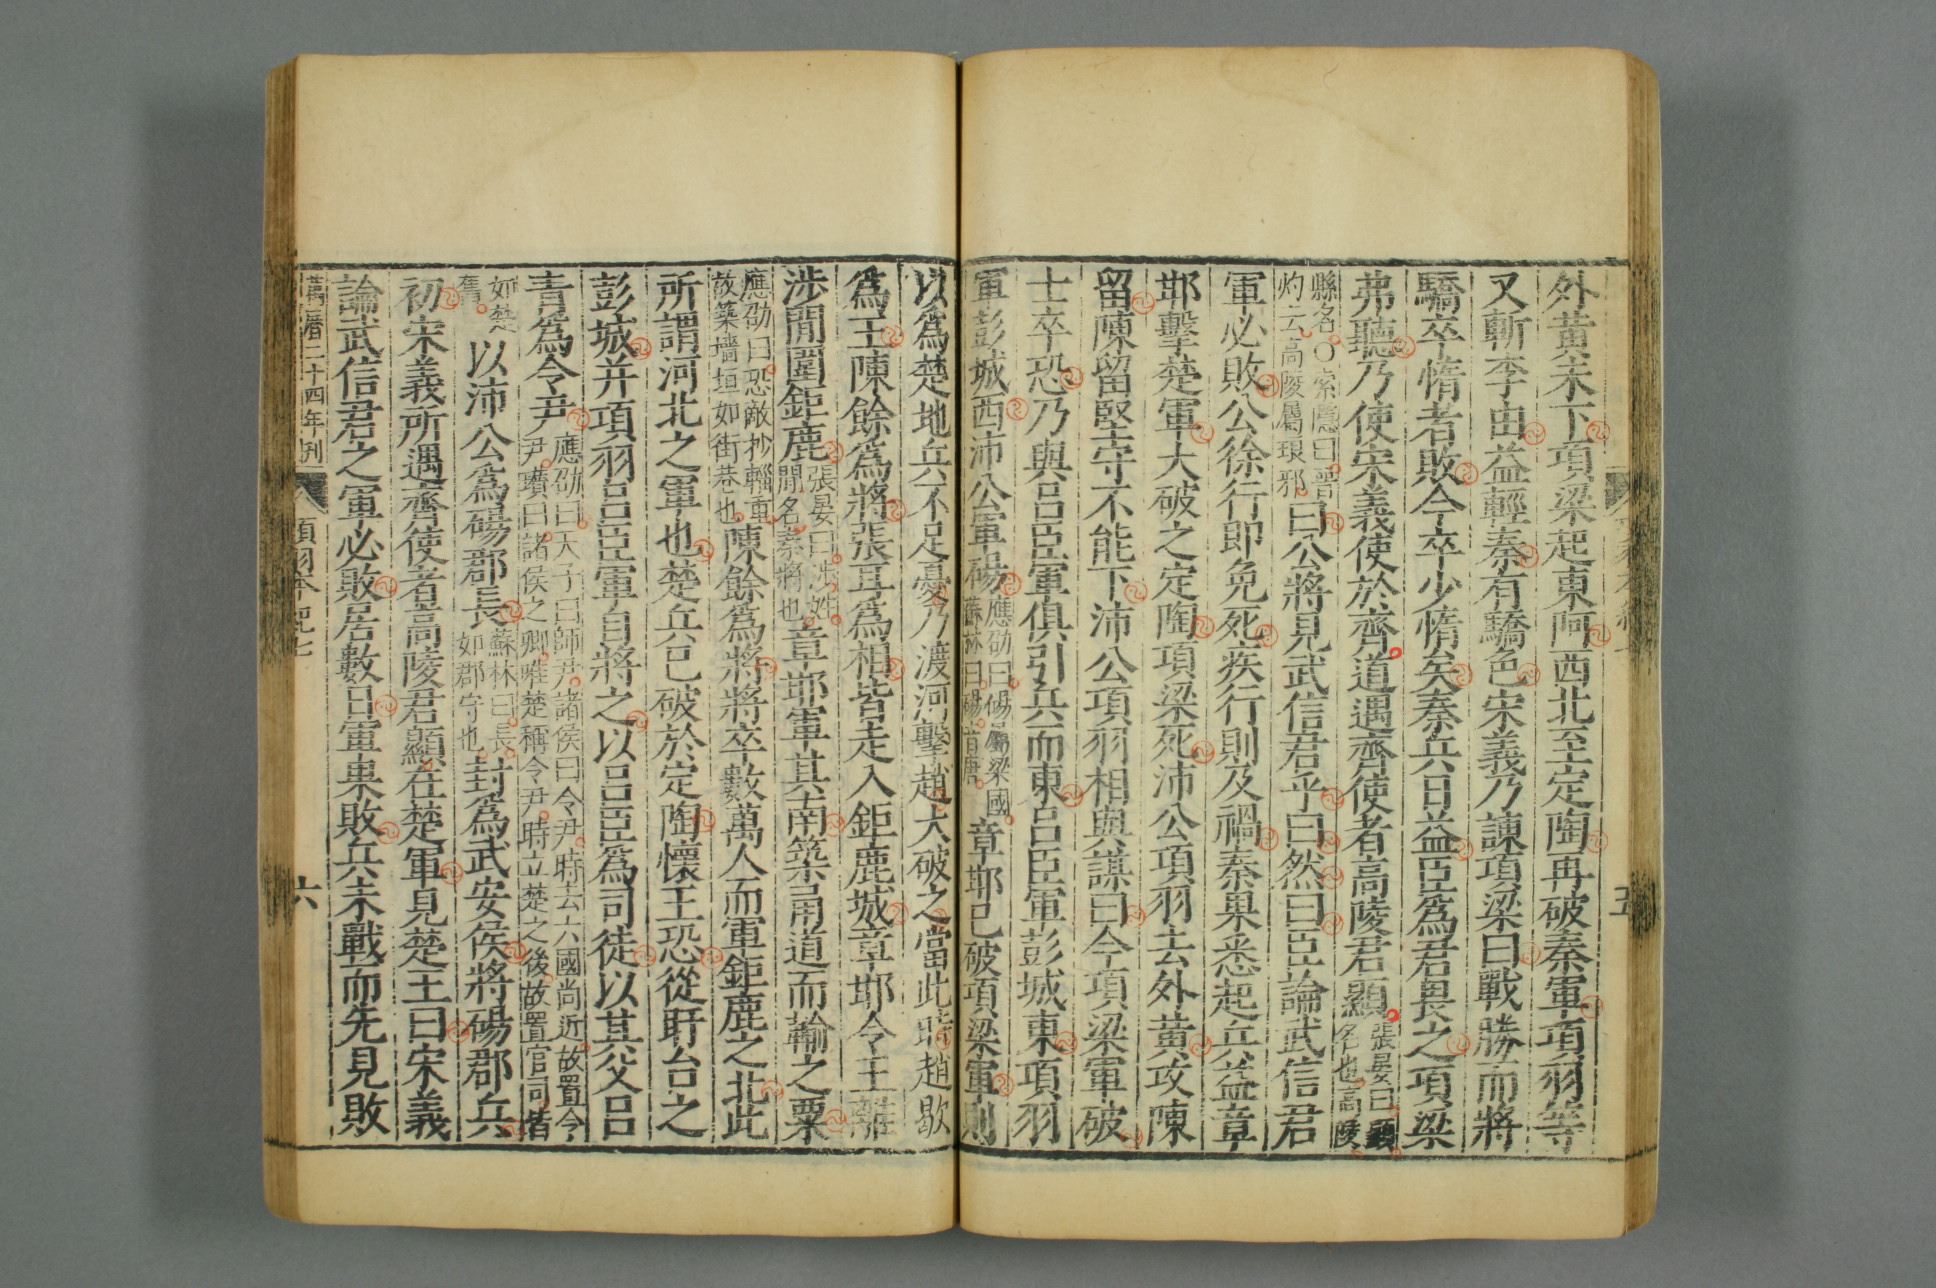 外黃未下項梁起東阿西北至定陶再破秦軍項羽等
又斬李由益輕秦有驕色宋義乃諫項梁曰戰勝而將
驕卒惰者敗今卒少惰矣秦兵日益臣爲君畏之項梁
弗聽乃使宋義使於齊道遇齊使者高陵君顯張晏曰顯名也高陵
縣名〇索隱曰晉灼云高陵屬琅邪曰公將見武信君乎曰然曰臣論武信君
軍必敗公徐行即免死疾行則及禍秦果悉起兵益章
邯擊楚軍大破之定陶項梁死沛公項羽去外黃攻陳
留陳留堅守不能下沛公項羽相與謀曰今項梁軍破
士卒恐乃與呂臣軍俱引兵而東呂臣軍彭城東項羽
軍彭城西沛公軍碭應劭曰碭屬梁國蘇林曰碭音唐章邯已破項梁軍則
以爲楚地兵不足憂乃渡河擊趙大破之當此時趙歇
爲王陳餘爲將張耳爲相皆走入鉅鹿城章邯令王離
涉閒圍鉅鹿張晏曰涉姓閒名秦將也章邯軍其南築甬道而輸之粟
應劭曰恐敵抄輜重故築墻垣如街巷也陳餘爲將將卒數萬人而軍鉅鹿之北此
所謂河北之軍也楚兵已破於定陶懷王恐從盱台之
彭城并項羽呂臣軍自將之以呂臣爲司徒以其父呂
青爲令尹應劭曰天子曰師尹諸侯曰令尹時去六國尚近故置令尹瓚曰諸侯之卿唯楚稱令尹時立楚之後故置官司皆
如楚舊以沛公爲碭郡長蘇林曰長如郡守也封爲武安侯將碭郡兵
初宋義所遇齊使者高陵君顯在楚軍見楚王曰宋義
論武信君之軍必敗居數日軍果敗兵未戰而先見敗
萬曆二十四年刊
項羽本紀七
六